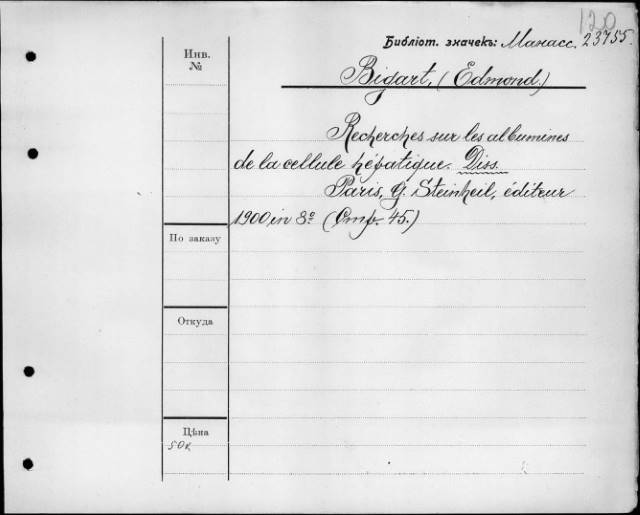 120
Библіот. значекъ: Манасс. 23755.
Инв.
№
Bigart, (Edmond)
Recherches sur les albumines
de la cellule hépatique. Diss.
Paris, G. Steinheil, éditeur
1900, in 8º (Стр. 45.)
По заказу
Откуда
Цѣна
50к